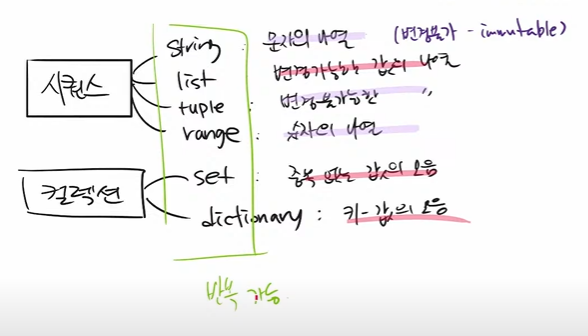 시퀀스
string : 문자의 나열 (변경불가 - immutable)
list : 변경가능한 값의 나열
tuple : 변경불가능한 〃
range : 숫자의 나열
컬렉션
set : 중복 없는 값의 모음
dictionary : 키-값의 모음
반복 가능